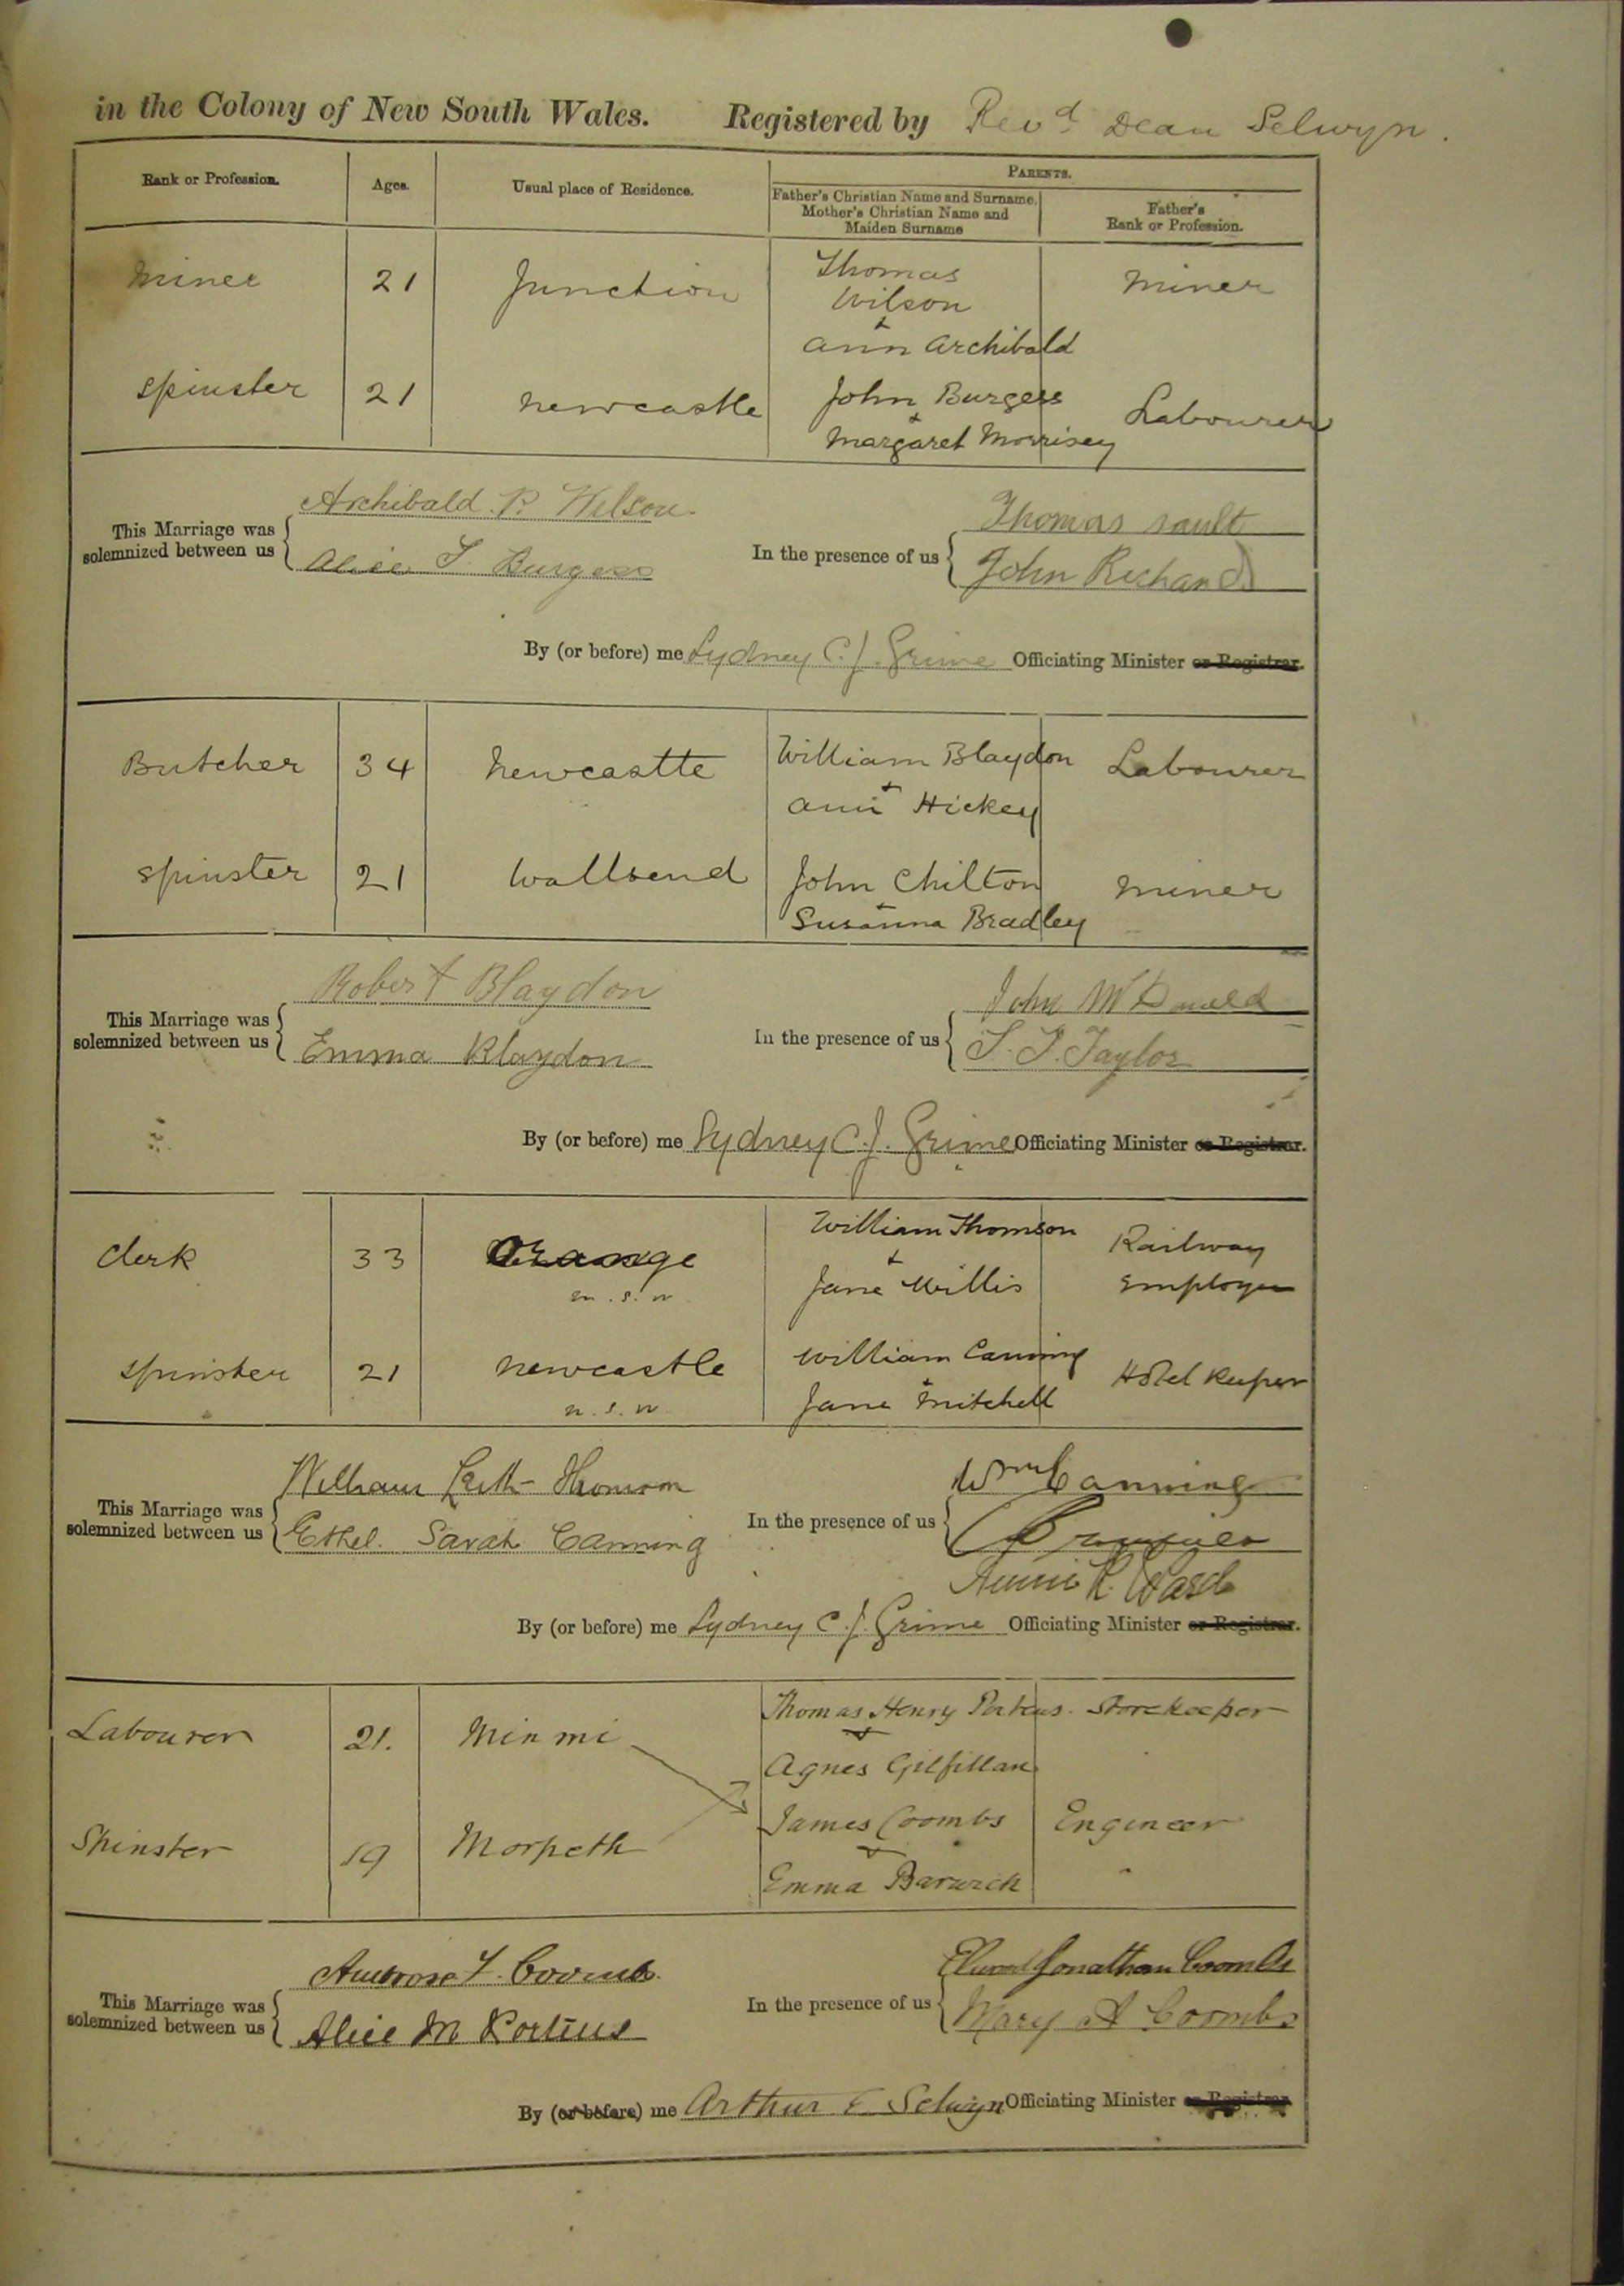 in the Colony of New South Wales. Registered by Revd Dean Selwyn.
Rank or Profession. Ages. Usual place of Residence. PARENTS.
Father's Christian Name and Surname. Mother's Christian Name and Maiden Surname Father's Rank or Profession.
Miner 21 Junction Thomas Wilson Miner
&
Ann Archibald
Spinster 21 Newcastle John Burgess Labourer
&
Margaret Morrisey
This Marriage was solemnized between us Archibald P. Wilson
Alice T. Burgess
In the presence of us Thomas Sault
John Richards
By (or before) me Sydney C. J. Grime Officiating Minister or Registrar.
Butcher 34 Newcastle William Blaydon Labourer
&
Ann Hickey
Spinster 21 Wallsend John Chilton Miner
&
Susanna Bradley
This Marriage was solemnized between us Robert Blaydon
Emma Blaydon
In the presence of us John McDonald
T. Taylor
By (or before) me Sydney C. J. Grime Officiating Minister or Registrar.
Clerk 33 Orange William Thomson Railway
N.S.W & Employee
Jane Willis
Spinster 21 Newcastle William Canning Hotel Keeper
N.S.W &
Jane Mitchell
This Marriage was solemnized between us William Leith Thomson
Ethel Sarah Canning
In the presence of us Wm Canning
Annie R. Ward
By (or before) me Sydney C. J. Grime Officiating Minister or Registrar.
Labourer 21. Minmi Thomas Henry Porteus. Storekeeper
&
Agnes Gilfillan
Spinster 19 Morpeth James Coombs Engineer
&
Emma Barwick
This Marriage was solemnized between us Ambrose F. Coombs.
Alice M Porteus
In the presence of us Jonathan Coombs
Mary A Coombs
By (or before) me Arthur E Selwyn Officiating Minister or Registrar